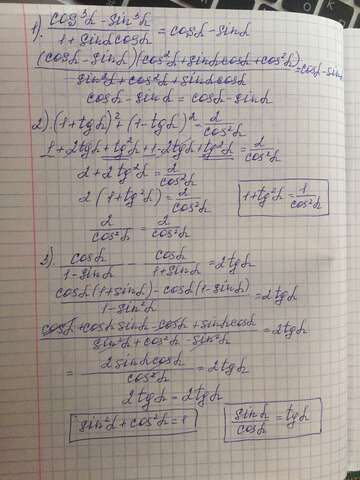 1). cos³α - sin³α / 1 + sinα cosα = cosα - sinα
(cosα - sinα)(cos²α + sinα cosα + cos²α) / sin²α + cos²α + sinα cosα = cosα - sinα
cosα - sinα = cosα - sinα
2). (1 + tgα)² + (1 - tgα)² = 2 / cos²α
1 + 2tgα + tg²α + 1 - 2tgα + tg²α = 2 / cos²α
2 + 2tg²α = 2 / cos²α
2(1 + tg²α) = 2 / cos²α
1 + tg²α = 1 / cos²α
2 / cos²α = 2 / cos²α
3). cosα / 1 - sinα - cosα / 1 + sinα = 2tgα
cosα(1 + sinα) - cosα(1 - sinα) / 1 - sin²α = 2tgα
cosα + cosα sinα - cosα + sinα cosα / sin²α + cos²α - sin²α = 2tgα
= 2sinα cosα / cos²α = 2tgα
2tgα = 2tgα
sin²α + cos²α = 1
sinα / cosα = tgα